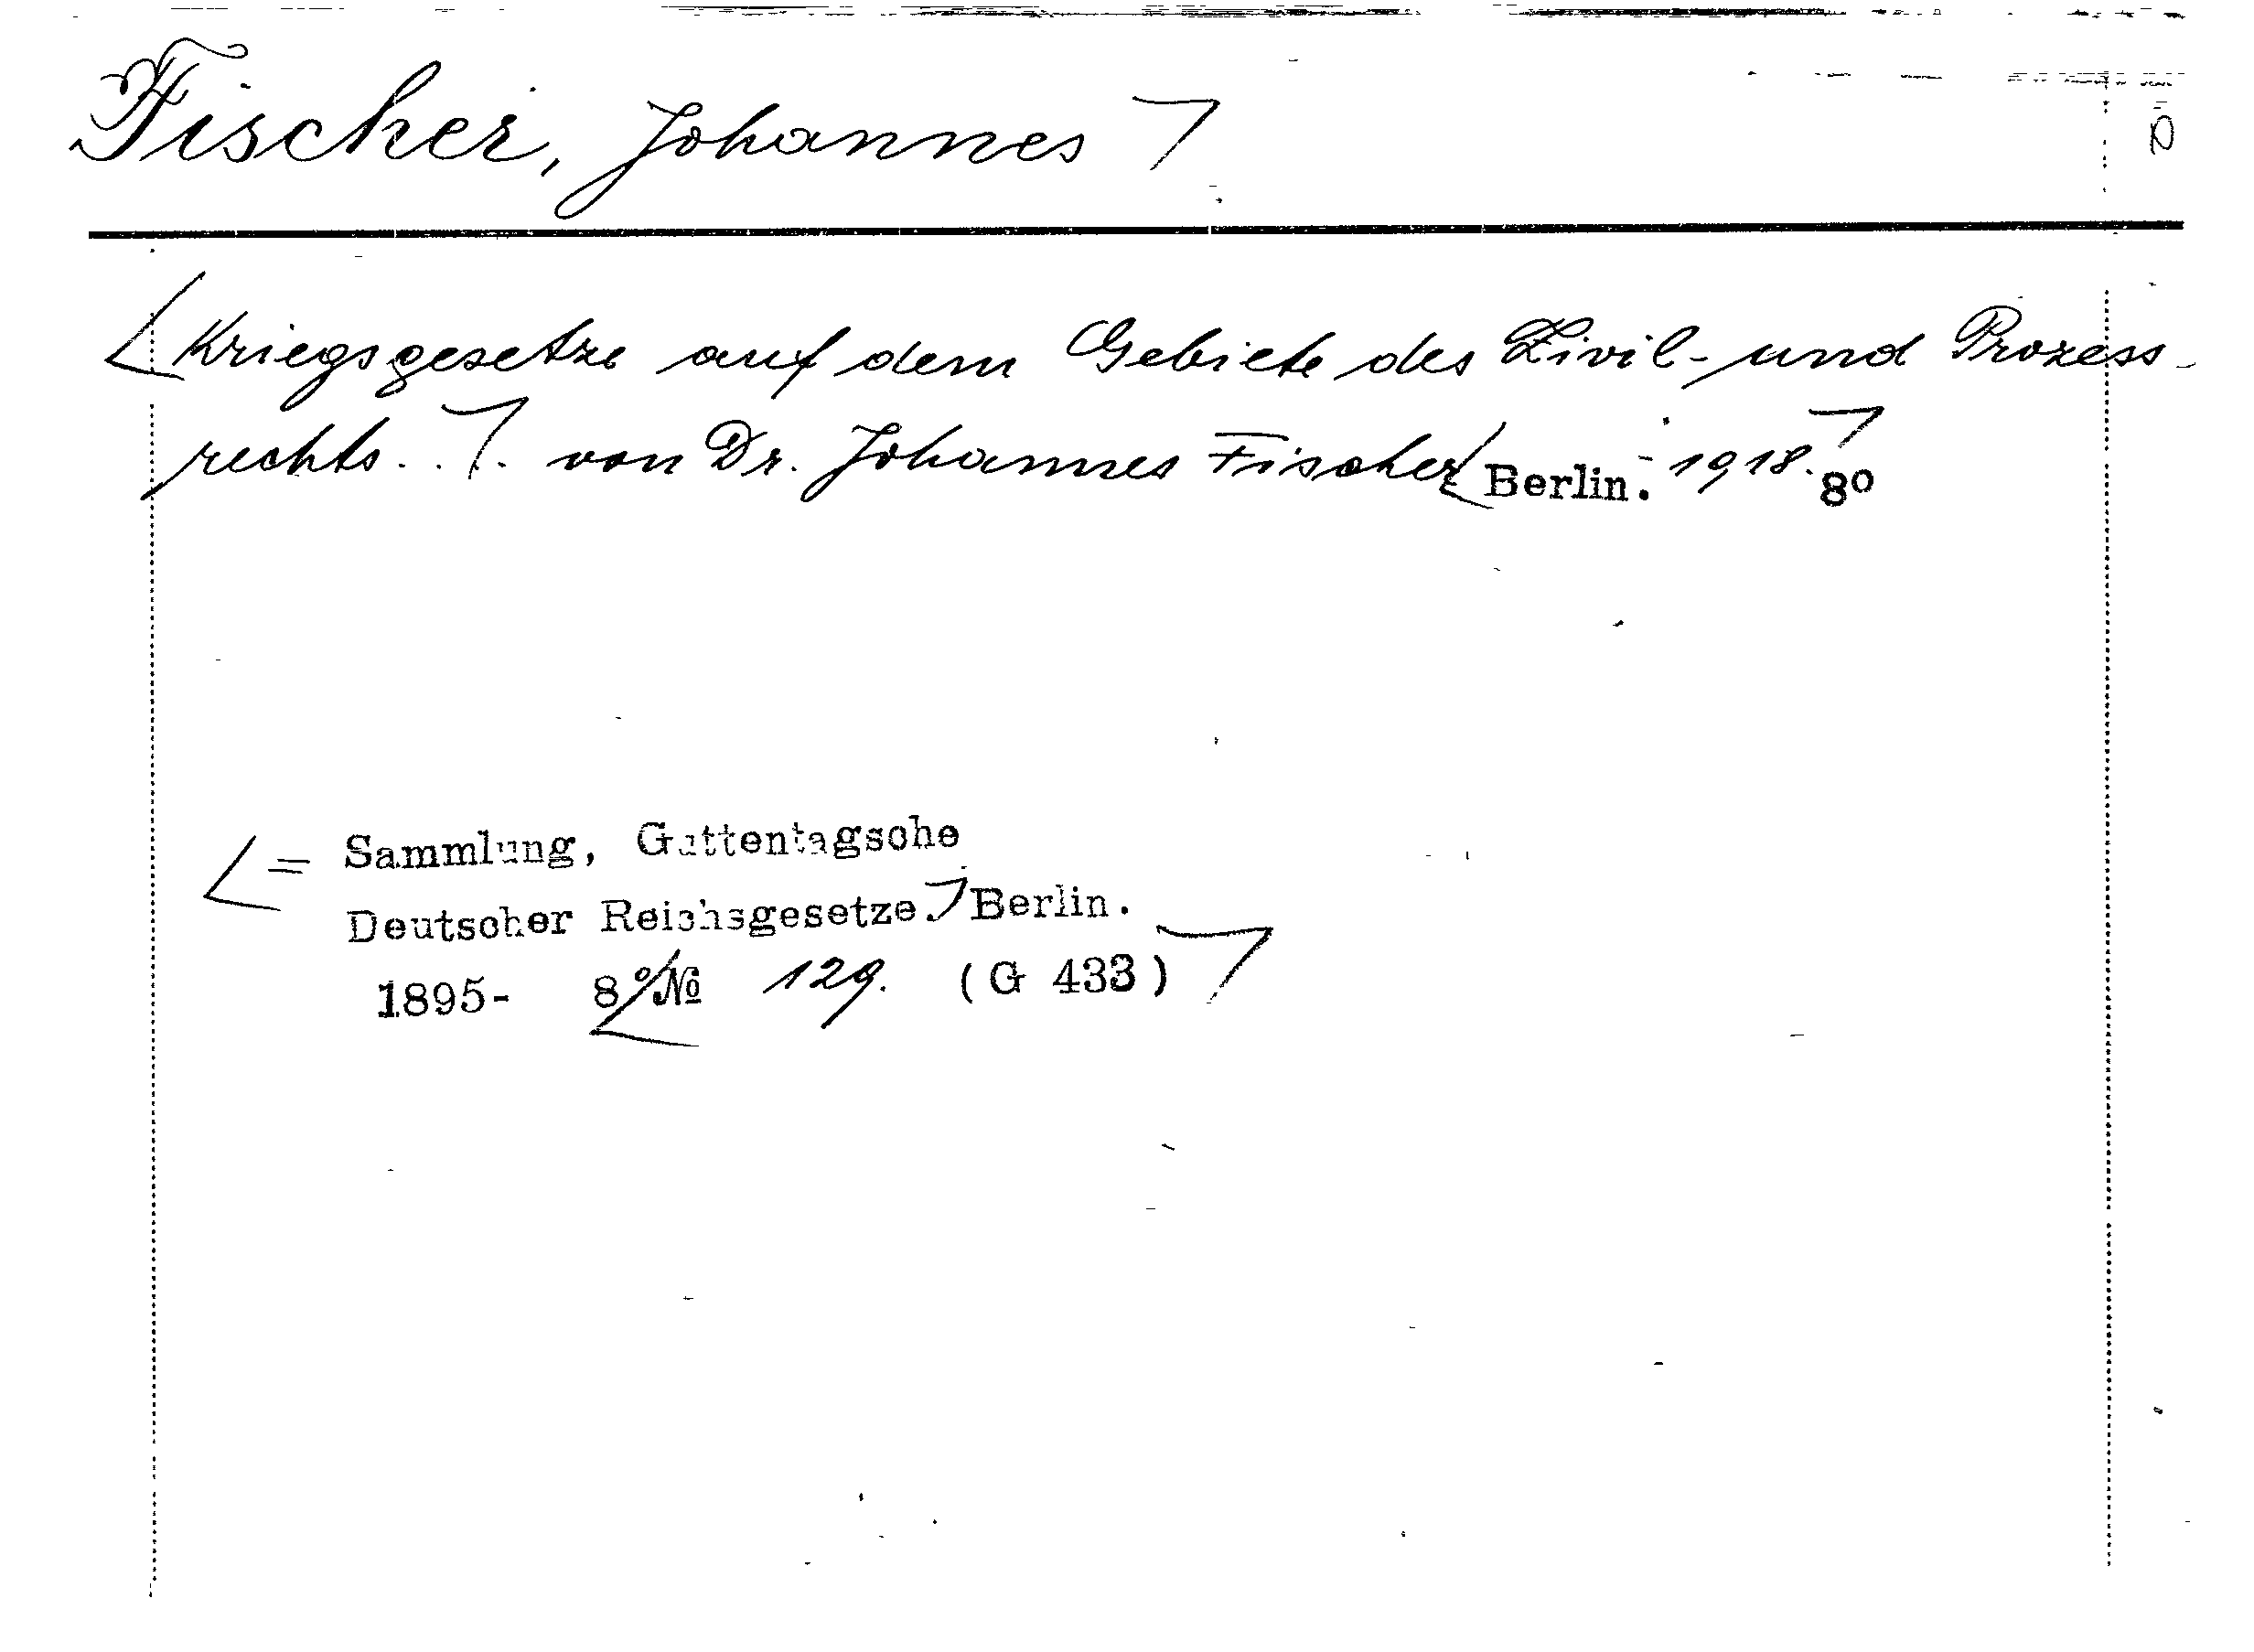 Fischer, Johannes
Kriegsgesetze auf dem Gebiete des Zivil- und Prozess-
rechts... von Dr. Johannes Fischer Berlin. 1918. 8º
= Sammlung, Guttentagsche
Deutscher Reichsgesetze. Berlin.
1895- 8º № 129. (G 433)